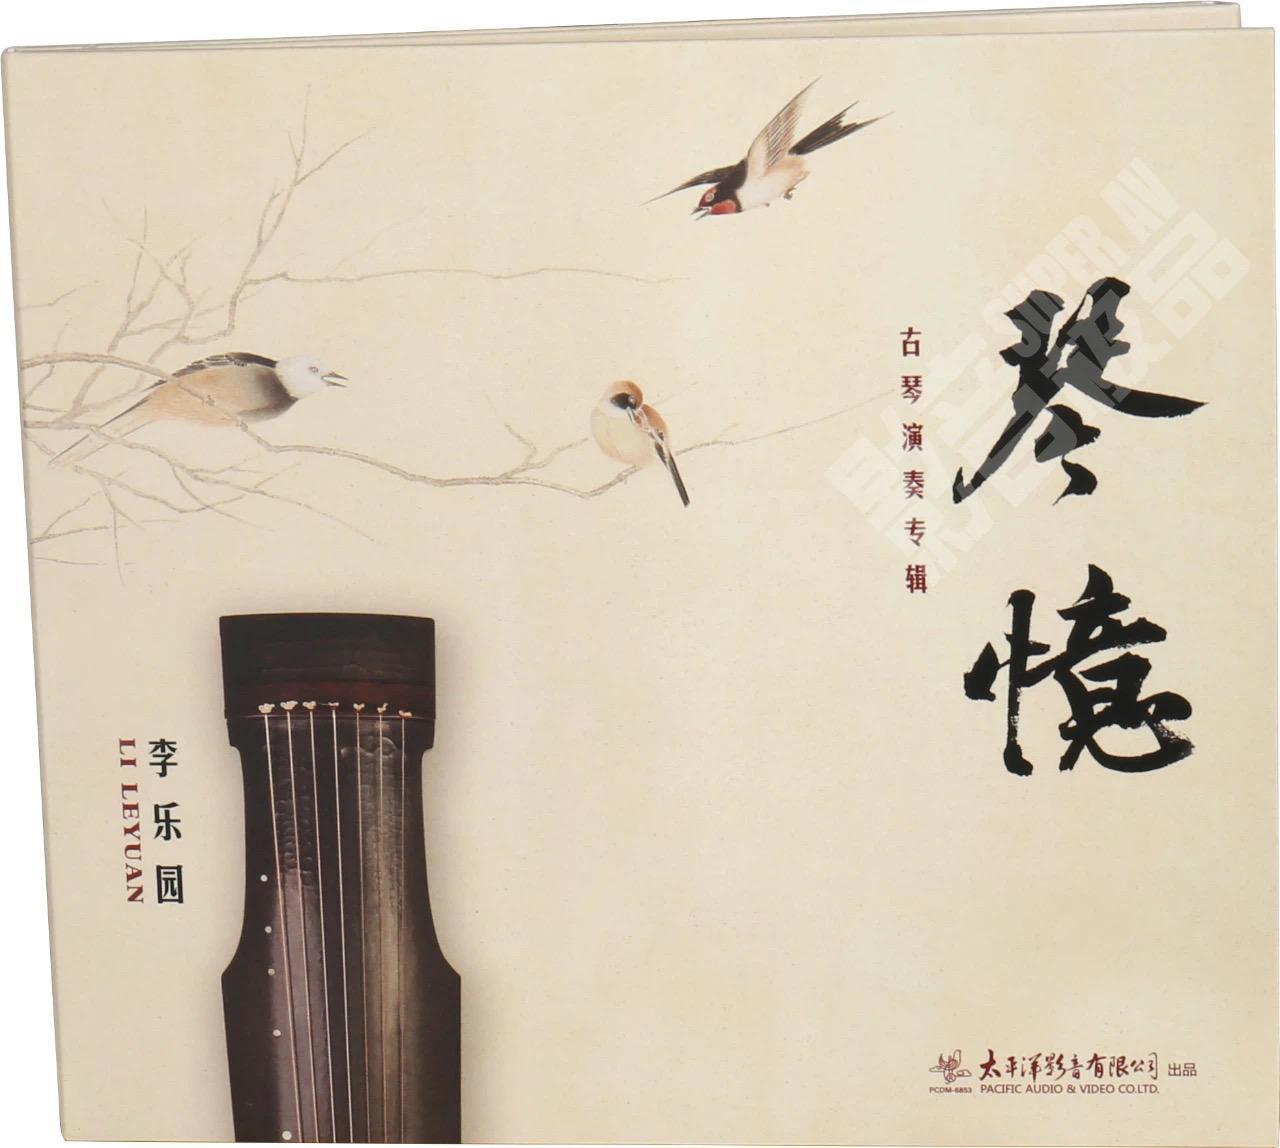 琴憶
古琴演奏专辑
李乐园
LI LEYUAN
太平洋影音有限公司 出品
PCDM-6853 PACIFIC AUDIO & VIDEO CO.LTD.
SUPER AV
影音极品